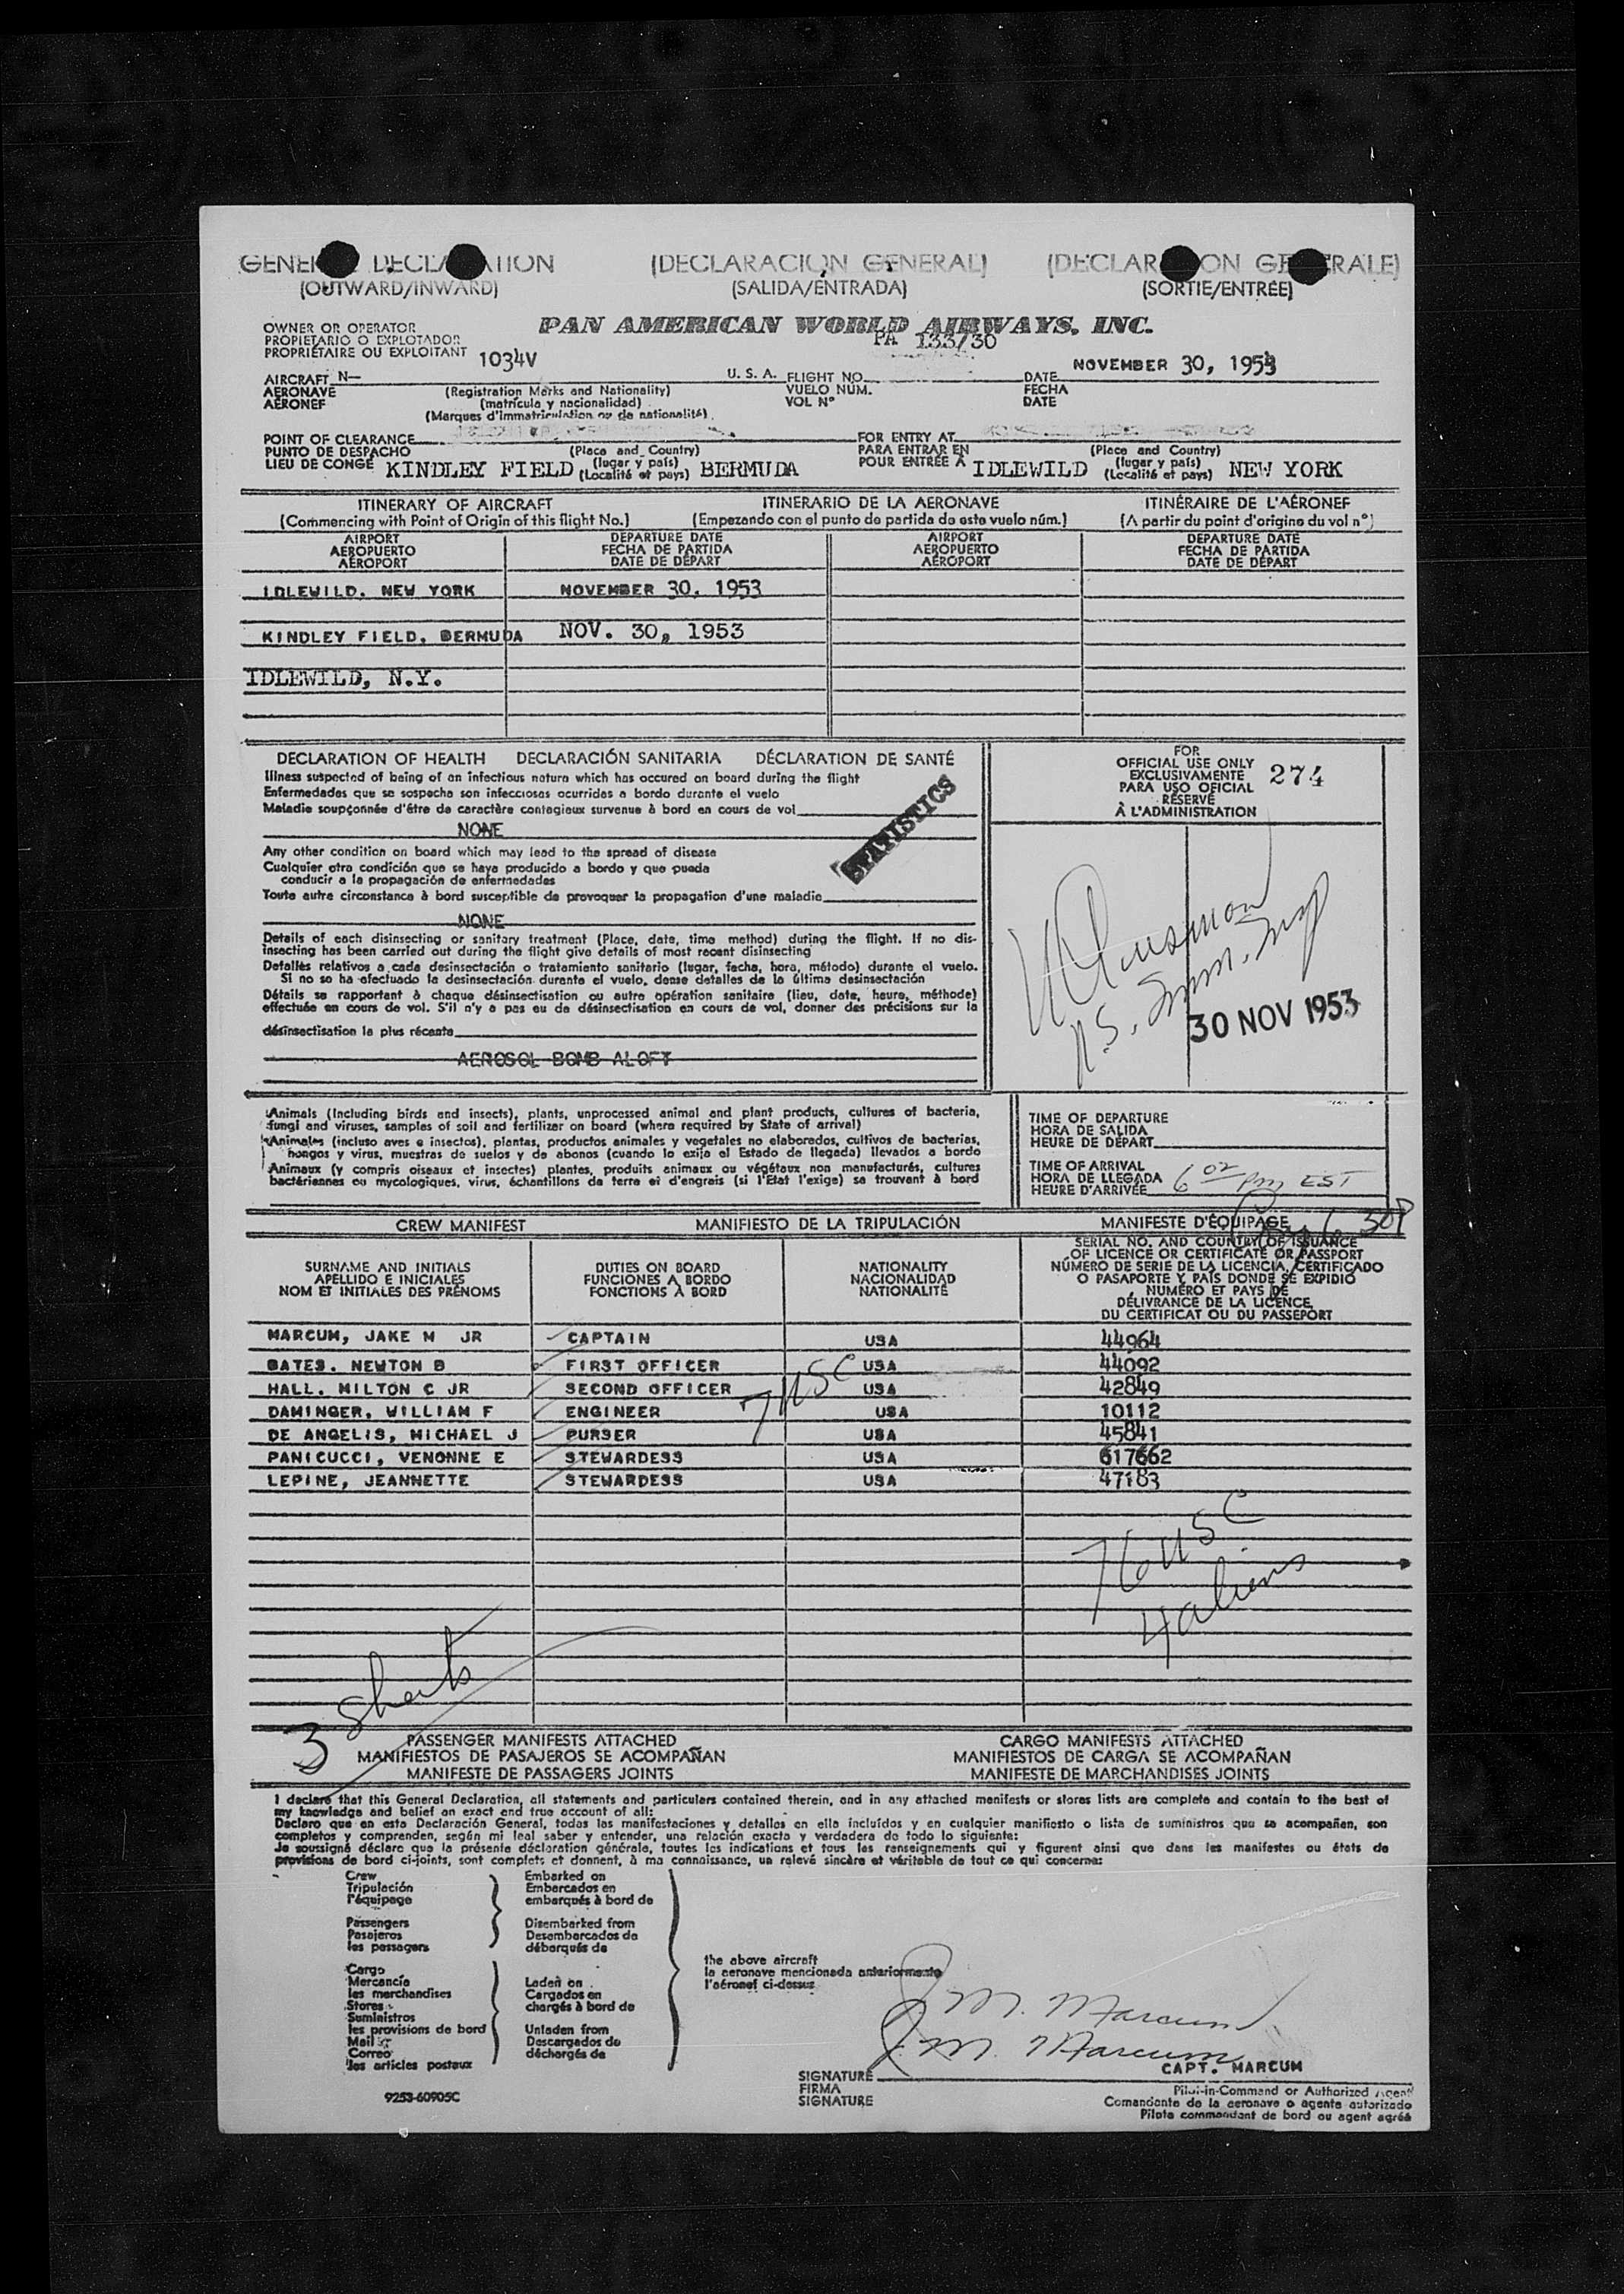 (DECLARACIÓN GENERAL)
(OUTWARD/INWARD) (SALIDA/ENTRADA) (SORTIE/ENTRÉE)
OWNER OR OPERATOR
PROPIETARIO O EXPLOTADOR
PROPRIÉTAIRE OU EXPLOITANT
PAN AMERICAN WORLD AIRWAYS, INC.
PA 133/30
1034V
AIRCRAFT N— U. S. A. FLIGHT NO. DATE NOVEMBER 30, 1953
AERONAVE (Registration Marks and Nationality) VUELO NÚM. FECHA
AÉRONEF (matrícula y nacionalidad) VOL Nº DATE
(Marques d'immatriculation ou de nationalité)
POINT OF CLEARANCE FOR ENTRY AT
PUNTO DE DESPACHO (Place and Country) PARA ENTRAR EN (Place and Country)
LIEU DE CONGÉ KINDLEY FIELD (lugar y país) BERMUDA POUR ENTRÉE À IDLEWILD (lugar y país) NEW YORK
(Localité et pays) (Localité et pays)
ITINERARY OF AIRCRAFT ITINERARIO DE LA AERONAVE ITINÉRAIRE DE L'AÉRONEF
(Commencing with Point of Origin of this flight No.) (Empezando con el punto de partida de este vuelo núm.) (A partir du point d'origine du vol nº)
AIRPORT DEPARTURE DATE AIRPORT DEPARTURE DATE
AEROPUERTO FECHA DE PARTIDA AEROPUERTO FECHA DE PARTIDA
AÉROPORT DATE DE DÉPART AÉROPORT DATE DE DÉPART
IDLEWILD. NEW YORK NOVEMBER 30. 1953
KINDLEY FIELD, BERMUDA NOV. 30, 1953
IDLEWILD, N.Y.
DECLARATION OF HEALTH DECLARACIÓN SANITARIA DÉCLARATION DE SANTÉ
Illness suspected of being of an infectious nature which has occured on board during the flight
Enfermedades que se sospecha son infecciosas ocurridas a bordo durante el vuelo
Maladie soupçonnée d'être de caractère contagieux survenue à bord en cours de vol
NONE
STATISTICS
Any other condition on board which may lead to the spread of disease
Cualquier otra condición que se haya producido a bordo y que pueda
conducir a la propagación de enfermedades
Toute autre circonstance à bord susceptible de provoquer la propagation d'une maladie
NONE
Details of each disinsecting or sanitary treatment (Place, date, time method) during the flight. If no dis-
insecting has been carried out during the flight give details of most recent disinsecting
Detalles relativos a cada desinsectación o tratamiento sanitario (lugar, fecha, hora, método) durante el vuelo.
Si no se ha efectuado la desinsectación durante el vuelo, dense detalles de la última desinsectación
Détails se rapportant à chaque désinsectisation ou autre opération sanitaire (lieu, date, heure, méthode)
effectuée en cours de vol. S'il n'y a pas eu de désinsectisation en cours de vol, donner des précisions sur la
désinsectisation la plus récente
AEROSOL BOMB ALOFT
FOR
OFFICIAL USE ONLY
EXCLUSIVAMENTE
PARA USO OFICIAL
RÉSERVÉ
À L'ADMINISTRATION
274
30 NOV 1953
Animals (Including birds and insects), plants, unprocessed animal and plant products, cultures of bacteria,
fungi and viruses, samples of soil and fertilizer on board (where required by State of arrival)
Animales (incluso aves e insectos), plantas, productos animales y vegetales no elaborados, cultivos de bacterias,
hongos y virus, muestras de suelos y de abonos (cuando lo exija el Estado de llegada) llevados a bordo
Animaux (y compris oiseaux et insectes) plantes, produits animaux ou végétaux non manufacturés, cultures
bactériennes ou mycologiques, virus, échantillons de terre et d'engrais (si l'Etat l'exige) se trouvant à bord
TIME OF DEPARTURE
HORA DE SALIDA
HEURE DE DÉPART
TIME OF ARRIVAL
HORA DE LLEGADA
HEURE D'ARRIVÉE 6 02 pm EST
CREW MANIFEST MANIFIESTO DE LA TRIPULACIÓN MANIFESTE D'ÉQUIPAGE
SURNAME AND INITIALS
APELLIDO E INICIALES
NOM ET INITIALES DES PRÉNOMS
DUTIES ON BOARD
FUNCIONES A BORDO
FONCTIONS À BORD
NATIONALITY
NACIONALIDAD
NATIONALITÉ
SERIAL NO. AND COUNTRY OF ISSUANCE
OF LICENCE OR CERTIFICATE OR PASSPORT
NÚMERO DE SERIE DE LA LICENCIA, CERTIFICADO
O PASAPORTE Y PAÍS DONDE SE EXPIDIÓ
NUMÉRO ET PAYS DE
DÉLIVRANCE DE LA LICENCE,
DU CERTIFICAT OU DU PASSEPORT
MARCUM, JAKE M JR CAPTAIN USA 44964
BATES. NEWTON B FIRST OFFICER USA 44092
HALL. MILTON C JR SECOND OFFICER USA 42849
DAMINGER, WILLIAM F ENGINEER USA 10112
DE ANGELIS, MICHAEL J PURSER USA 45841
PANICUCCI, VENONNE E STEWARDESS USA 617662
LEPINE, JEANNETTE STEWARDESS USA 47183
7 USC
76 USC
4 aliens
3 sheets
PASSENGER MANIFESTS ATTACHED CARGO MANIFESTS ATTACHED
MANIFIESTOS DE PASAJEROS SE ACOMPAÑAN MANIFIESTOS DE CARGA SE ACOMPAÑAN
MANIFESTE DE PASSAGERS JOINTS MANIFESTE DE MARCHANDISES JOINTS
I declare that this General Declaration, all statements and particulars contained therein, and in any attached manifests or stores lists are complete and contain to the best of
my knowledge and belief an exact and true account of all:
Declaro que en esta Declaración General, todas las manifestaciones y detalles en ella incluídos y en cualquier manifiesto o lista de suministros que se acompañan, son
completos y comprenden, según mi leal saber y entender, una relación exacta y verdadera de todo lo siguiente:
Je soussigné déclare que la présente déclaration générale, toutes les indications et tous les renseignements qui y figurent ainsi que dans les manifestes ou états de
provisions de bord ci-joints, sont complets et donnent, à ma connaissance, un relevé sincère et véritable de tout ce qui concerne:
Crew Embarked on
Tripulación Embarcados en
l'équipage embarqués à bord de
Passengers Disembarked from
Pasajeros Desembarcados de
les passagers débarqués de
the above aircraft
la aeronave mencionada anteriormente
l'aéronef ci-dessus
Cargo
Mercancía Laden on
les merchandises Cargados en
Stores chargés à bord de
Suministros
les provisions de bord Unladen from
Mail Descargados de
Correo déchargés de
les articles postaux
J. M. Marcum
J. M. Marcum
CAPT. MARCUM
SIGNATURE
FIRMA
SIGNATURE
Pilot-in-Command or Authorized Agent
Comandante de la aeronave o agente autorizado
Pilote commandant de bord ou agent agréé
9253-60905C